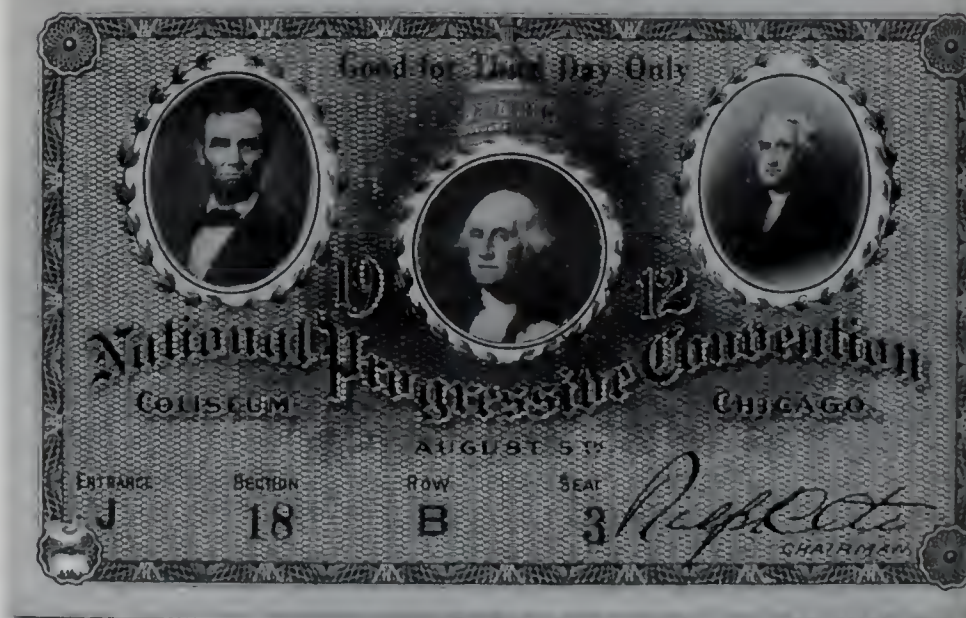 Good for Third Day Only
19 12
National Progressive Convention
COLISEUM CHICAGO
AUGUST 5TH
ENTRANCE SECTION ROW SEAT
J 18 B 3
CHAIRMAN